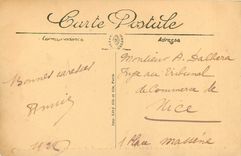 Carte Postale
Correspondance
Adresse
Bonnes
Monsieur A. Dalhera
Juge au Tribunal
de Commerce de
Nice
1 Place Masséna